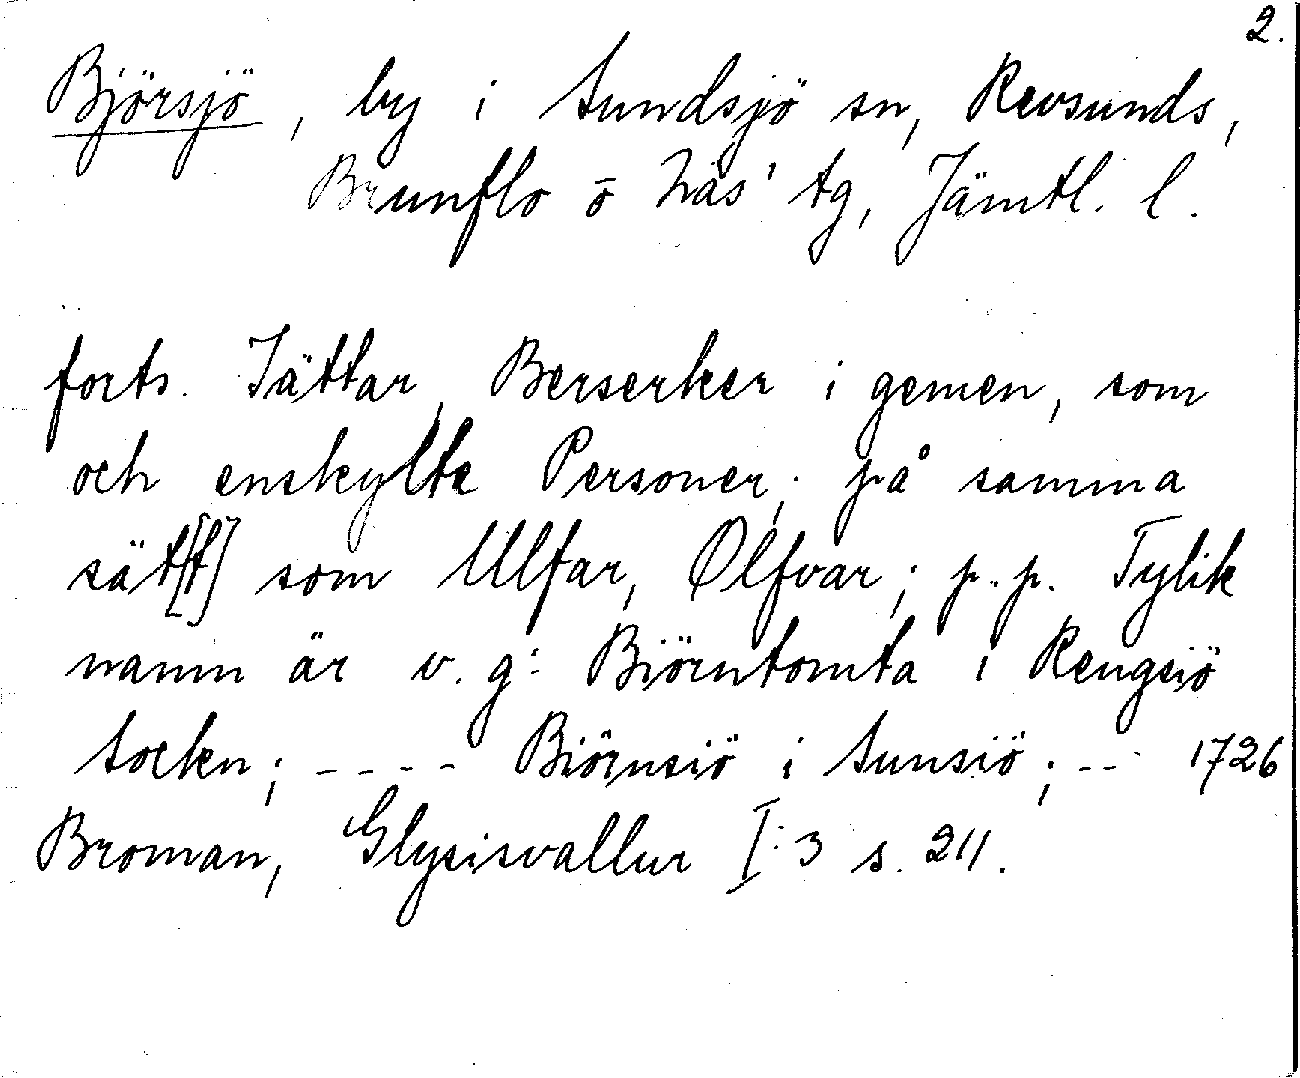 2.
Björsjö, by i Sundsjö sn, Revsunds,
Brunflo o Näs' tg, Jämtl. l.
forts. Jättar, Berserker i gemen, som
och enskylte Personer; på samma
sät[t] som Ulfar, Olfvar; p.p. Tylik
namn är v.g: Biörntomta i Rengsiö
Sockn; ---- Biörnsiö i Sunsiö; -- 1726
Broman, Glysisvallur I:3 s. 211.